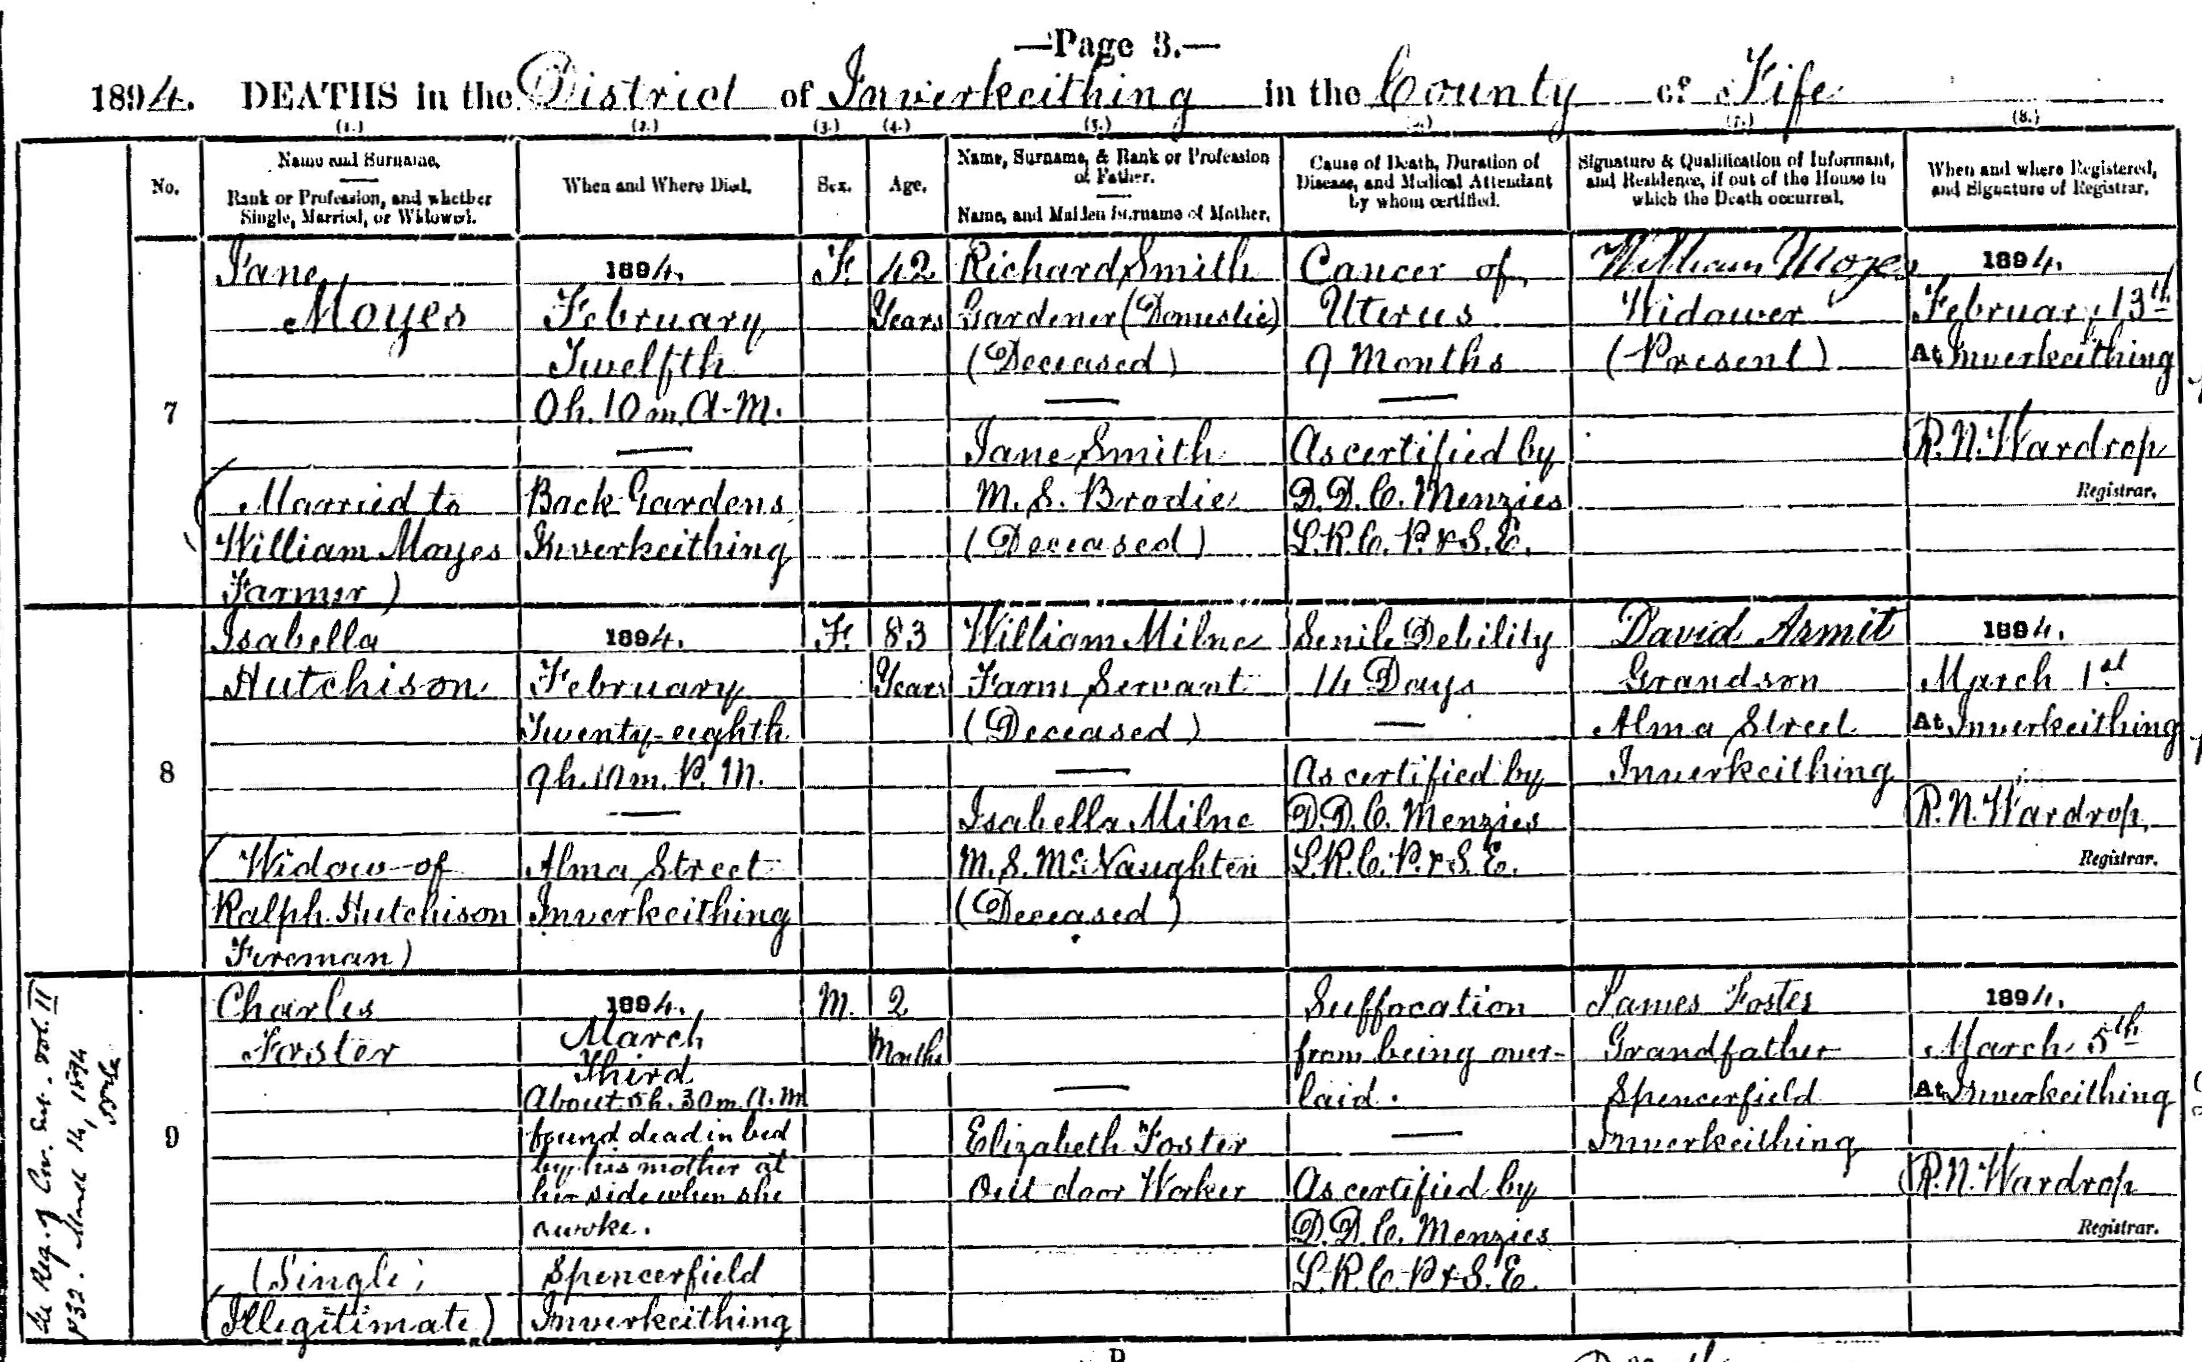 —Page 3.—
1894. DEATHS in the District of Inverkeithing in the County of Fife
(1.) (2.) (3.) (4.) (5.) (6.) (7.) (8.)
No.
Name and Surname.
Rank or Profession, and whether
Single, Married, or Widowed.
When and Where Died.
Sex.
Age.
Name, Surname, & Rank or Profession
of Father.
Name, and Maiden Surname of Mother.
Cause of Death, Duration of
Disease, and Medical Attendant
by whom certified.
Signature & Qualification of Informant,
and Residence, if out of the House in
which the Death occurred.
When and where Registered,
and Signature of Registrar.
7
Jane
Moyes
(Married to
William Moyes
Farmer)
1894.
February
Twelfth
0h. 10m. A.M.
Back Gardens
Inverkeithing
F.
42
Years
Richard Smith
Gardener (Domestic)
(Deceased)
Jane Smith
M.S. Brodie
(Deceased)
Cancer of
Uterus
9 Months
As certified by
D.D.C. Menzies
L.R.C.P. & S.E.
William Moyes
Widower
(Present)
1894.
February 13th
At Inverkeithing
R.N. Wardrop
Registrar.
8
Isabella
Hutchison
(Widow of
Ralph Hutchison
Fireman)
1894.
February
Twenty-eighth
9h. 10m. P.M.
Alma Street
Inverkeithing
F.
83
Years
William Milne
Farm Servant
(Deceased)
Isabella Milne
M.S. McNaughten
(Deceased)
Senile Debility
14 Days
As certified by
D.D.C. Menzies
L.R.C.P. & S.E.
David Armit
Grandson
Alma Street
Inverkeithing
1894.
March 1st
At Inverkeithing
R.N. Wardrop
Registrar.
See Reg. of Cor. Ent. Vol. II
p 32. March 14, 1894
9
Charles
Foster
(Single)
(Illegitimate)
1894.
March
Third
About 5h. 30m. A.M.
found dead in bed
by his mother at
her side when she
awoke.
Spencerfield
Inverkeithing
M.
2
Months
Elizabeth Foster
Out door Worker
Suffocation
from being over-
laid.
As certified by
D.D.C. Menzies
L.R.C.P. & S.E.
James Foster
Grandfather
Spencerfield
Inverkeithing
1894.
March 5th
At Inverkeithing
R.N. Wardrop
Registrar.